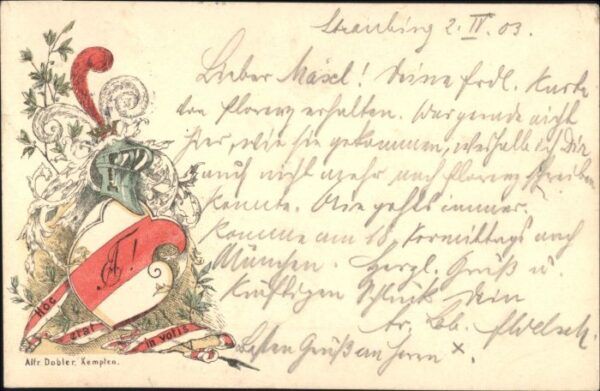 Straubing 2. IV. 03.
Lieber Mäsel! Deine frdl. Karte
von Florenz erhalten. War gerade nicht
hier, wie sie gekommen, weshalb ich Dir
auch nicht mehr nach Florenz schreiben
konnte. Wie gehts immer.
Komme am 18. Vormittags nach
München. Herzl. Gruß u.
kräftigen Schluck Dein
Besten Gruß an Herrn x.
A!
Hoc
erat
in votis
Alfr. Dobler, Kempten.